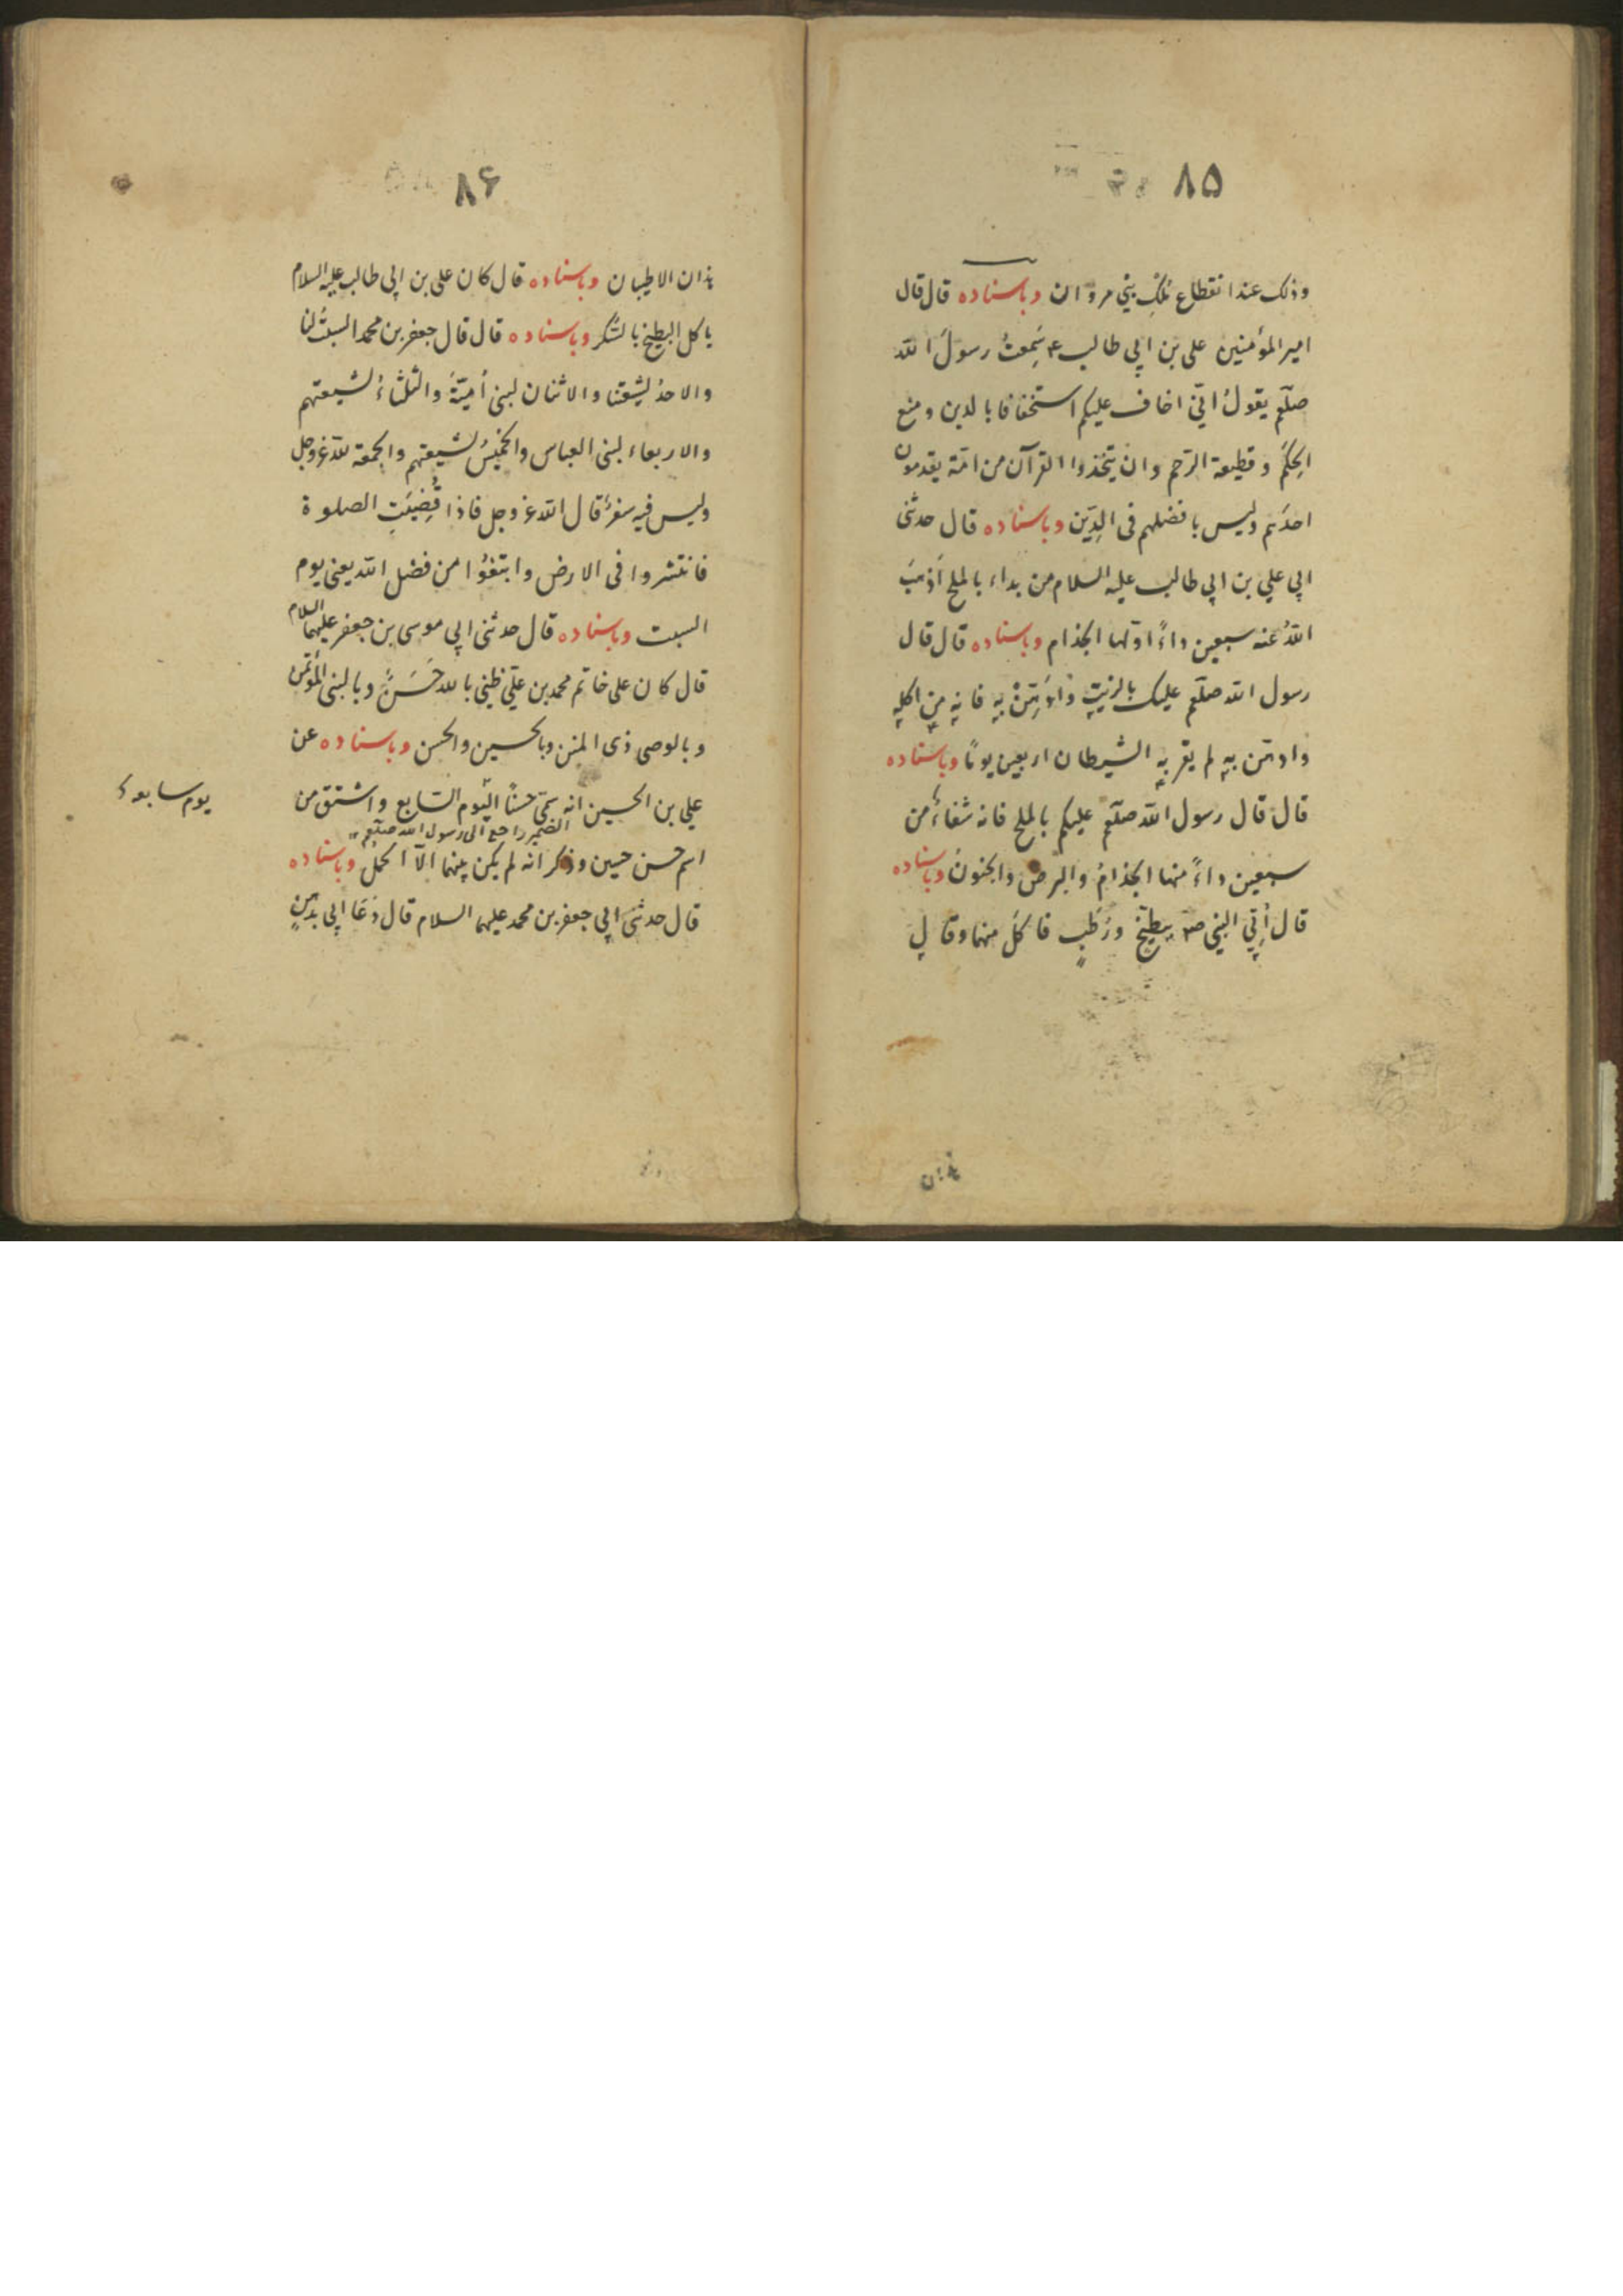 ٨٥
وذلك عند انقطاع مُلْكِ بني مروان وباسناده قال قال
امير المؤمنين على بن ابى طالب ع سَمِعتُ رسولَ الله
صلّعم يقولُ انّي اخاف عليكم استخفافا بالدين و منع
الحِكَمِ و قطيعة الرّحم وان يتّخذوا القرآن من امّة يقدمون
احدَهم وليس بافضلهم فى الدِّين وباسناده قال حدثنى
ابى علي بن ابى طالب عليه السلام من بداء بالملح اَذهبَ
اللّهُ عنه سبعين داءً اوّلها الجذام وباسناده قال قال
رسول الله صلّعم عليك بالزيتِ و ادّهِنْ بِهِ فانه من اكله
وادّهن به لم يقربه الشيطان اربعين يومًا وباسناده
قال قال رسول الله صلّعم عليكم بالملح فانه شفاءٌ من
سبعين داءً منها الجذامُ والبرص والجنونُ وباسناده
قال اُتِي النبي ص ببطّيخ ورُطَبٍ فاكلَ منهما وقال
هذان
٨۶
هذان الاطيبان وباسناده قال كان على بن ابى طالب عليه السلام
ياكل البطيخ بالسُّكر وباسناده قال قال جعفر بن محمد السبتُ لنا
والاحدُ لشيعتنا والاثنان لبنى اُميّةَ والثلثاءُ لشيعتهم
والاربعاء لبنى العباس والخميسُ لشيعتهم والجمعة للّه عز وجل
وليس فيه سفرٌ قال اللّه عز وجل فاذا قُضِيَتِ الصلوة
فانتشروا فى الارض وابتغوُا من فضل اللّه يعنى يوم
السبت وباسناده قال حدثنى ابى موسى بن جعفر عليهما السلام
قال كان على خاتم محمد بن علىّ ظنى باللّه حَسَنٌ وبالنبى المؤتمن
وبالوصى ذى المنن وبالحسين والحسن وباسناده عن
علي بن الحسين انه سمّى حسنًا اليَوم السّابع واشتق من
يوم سابعه
الضمير راجع الى رسول الله صلّعم
اسم حسن حسين وذكر انه لم يكن بينهما الّا الحملُ وباسناده
قال حدثنى ابى جعفر بن محمد عليهما السلام قال دَعَا ابى بدُهنٍ